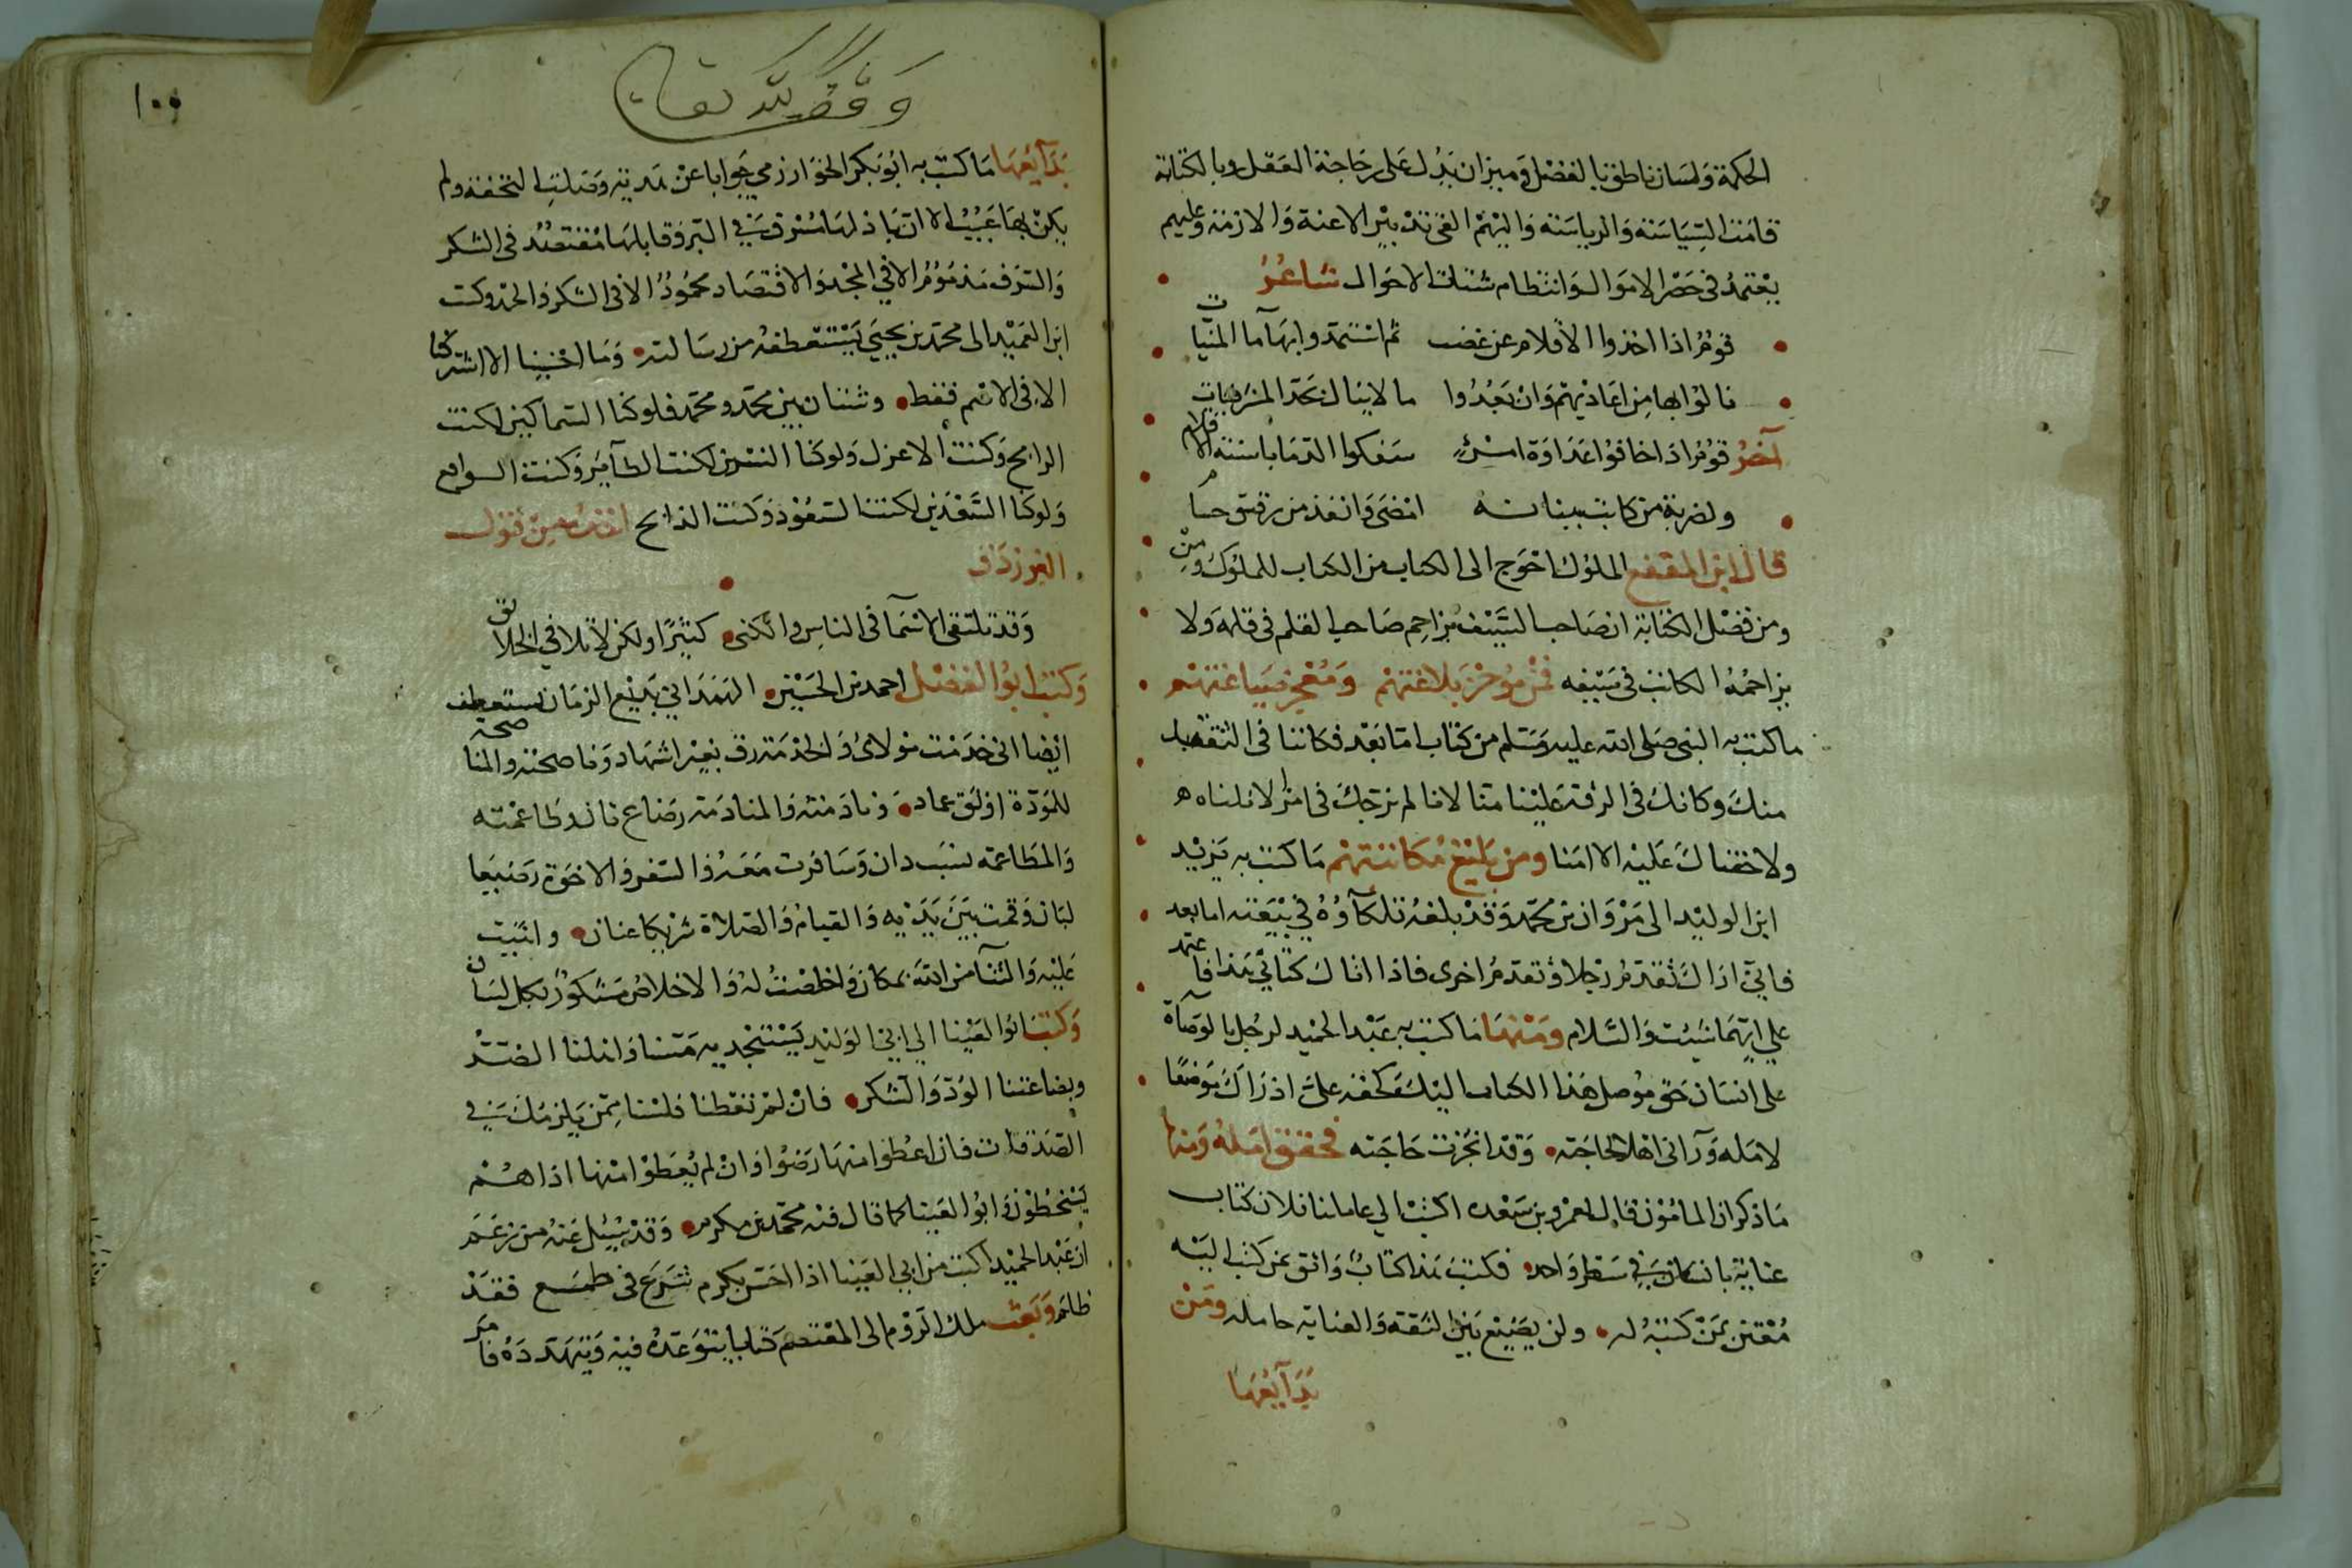 الحكمة ولسان ناطق بالفضل وميزان يدل على رجاحة العقل وبالكتابة
قامت السياسة والرياسة واليهم القى تدبير الاعنة والازمة وعليهم
يعتمد في حصر الاموال وانتظام شتات الاحوال شاعر
قوم اذا اخذوا الاقلام عن غضب ثم استمدوا بها ماء المنيات
نالوا بها من اعاديهم وان بعدوا ما لا ينال بحد المشرفيات
آخر قوم اذا خافوا عداوة امرئ سفكوا الدما باسنة الاقلام
ولضربة من كاتب ببنانه امضى وانفذ من رقيق حسام
قال ابن المقفع الملوك احوج الى الكتاب من الكتاب للملوك ومن
ومن فضل الكتابة ان صاحب السيف يزاحم صاحب القلم في قلمه ولا
يزاحمه الكاتب في سيفه فمن موجز بلاغتهم ومعجز صياغتهم
ما كتب به النبي صلى الله عليه وسلم من كتاب اما بعد فكاننا في الثقة بك
منك وكانك في الرقة علينا منا لانا لم نرجك في امر الا نلناه
ولا خفناك عليه الا امنا ومن بليغ مكاتبتهم ما كتب به يزيد
ابن الوليد الى مروان بن محمد وقد بلغه تلكاؤه في بيعته اما بعد
فاني اراك تقدم رجلا وتؤخر اخرى فاذا اتاك كتابي هذا فاعتمد
على ايهما شئت والسلام ومنها ما كتب به عبد الحميد لرجل بالوصاة
على انسان حق موصل هذا الكتاب اليك كحقه على اذ راك موضعا
لامله ورآني اهلا لحاجته وقد انجزت حاجته فحقق امله ومنها
ما ذكر ان المامون قال لعمرو بن سعده اكتب الى عاملنا فلان كتاب
عناية بانسان في سطر واحد فكتب هذا كتاب واثق بمن كتب اليه
معتن بمن كتبه له ولن يضيع بين الثقة والعناية حامله ومن
بدآيعها
وقف لله تعالى
١٠٥
بدآيعها ما كتب به ابو بكر الخوارزمي جوابا عن هدية وصلت التحفة ولم
يكن بها عيب الا ان باذلها مسرف في البر وقابلها مقتصد في الشكر
والسرف مذموم الا في المجد والاقتصاد محمود الا في الشكر والحمد وكتب
ابن العميد الى محمد بن يحيى يستعطفه من رسالته وما احببنا الا اشتركنا
الا في الاسم فقط وشتان بين محمد ومحمد فلو كنا السماكين لكنت
الرامح وكنت الاعزل ولو كنا النسرين لكنت الطآير وكنت الواقع
ولو كنا السعدين لكنت السعود وكنت الذابح اخذه من قول
الفرزدق
وقد تلتقي الاسما في الناس والكنى كثيرا ولكن لا تلاقي الخلائق
وكتب ابو الفضل احمد بن الحسين الهمداني بديع الزمان يستعطف
ايضا اني خدمت مولاي والخدمة رق بغير اشهاد وناصحته والمناصحة
للمودة اوثق عماد ونادمته والمنادمة رضاع ثان وطاعمته
والمطاعمة نسب دان وسافرت معه والسفر والاخوة رضيعا
لبان وقمت بين يديه والقيام والصلاة شريكا عنان واثنيت
عليه والثنآ من الله بمكان واخلصت له والاخلاص مشكور بكل لسان
وكتب ابو العينا الى ابي الوليد يستنجد به مسنا واهلنا الضر
وبضاعتنا الود والشكر فان لم تعطنا فلسنا ممن يلمزك في
الصدقات فان اعطوا منها رضوا وان لم يعطوا منها اذا هم
يسخطون وابو العينا كما قال فيه محمد بن مكرم وقد سئل عنه من زعم
ان عبد الحميد اكتب من ابي العينا اذا احس بكرم شرع في طمع فقد
ظلم وبعث ملك الروم الى المعتصم كتابا يتوعده فيه ويتهدده فامر